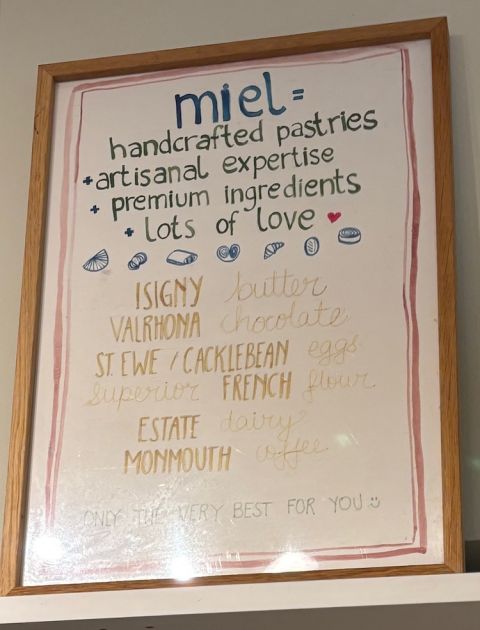 miel =
handcrafted pastries
+ artisanal expertise
+ premium ingredients
+ lots of love ❤
ISIGNY butter
VALRHONA chocolate
ST. EWE / CACKLEBEAN eggs
superior FRENCH flour
ESTATE dairy
MONMOUTH coffee
ONLY THE VERY BEST FOR YOU :)